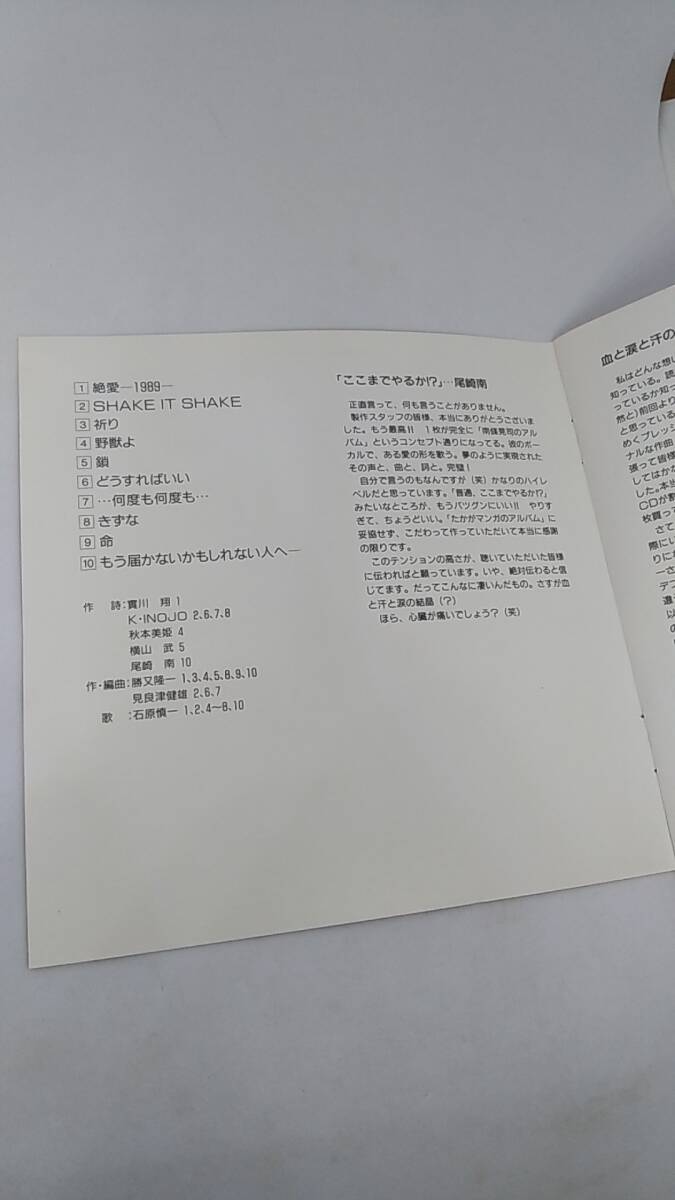 1 絶愛―1989―
2 SHAKE IT SHAKE
3 祈り
4 野獣よ
5 鎖
6 どうすればいい
7 …何度も何度も…
8 きずな
9 命
10 もう届かないかもしれない人へ―
作　詩：實川　翔 1
K・INOJO 2、6、7、8
秋本美姫 4
横山　武 5
尾崎　南 10
作・編曲：勝又隆一 1、3、4、5、8、9、10
見良津健雄 2、6、7
歌　：石原慎一 1、2、4〜8、10
「ここまでやるか!?」…尾崎南
正直言って、何も言うことがありません。
製作スタッフの皆様、本当にありがとうございま
した。もう最高!! 1枚が完全に「南條晃司のアル
バム」というコンセプト通りになってる。彼のボー
カルで、ある愛の形を歌う。夢のように実現された
その声と、曲と、詞と。完璧！
自分で言うのもなんですが（笑）かなりのハイレ
ベルだと思っています。「普通、ここまでやるか!?」
みたいなところが、もうバツグンにいい!! やりす
ぎて、ちょうどいい。「たかがマンガのアルバム」に
妥協せず、こだわって作っていただいて本当に感謝
の限りです。
このテンションの高さが、聴いていただいた皆様
に伝わればと願っています。いや、絶対伝わると信
じてます。だってこんなに凄いんだもの。さすが血
と汗と涙の結晶（？）
ほら、心臓が痛いでしょう？（笑）
血と涙と汗の
私はどんな想い
知っている。読
っているか知っ
然と）前回より
と思っている
めくプレッシ
ナルな作曲
張って皆様
してはかな
した。本当
CDが割
枚買って
さて
際にい
りにな
一さ
デフ
選
以
の